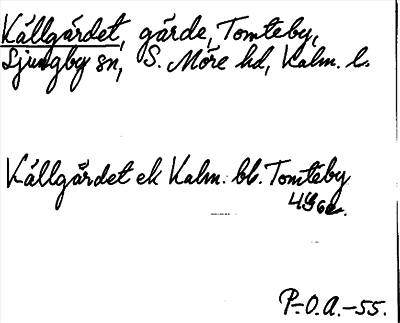 Källgärdet, gärde, Tomteby,
Ljungby sn, S. Möre hd, Kalm. l.
Källgärdet ek Kalm. bl. Tomteby
P.-O.A.-55.